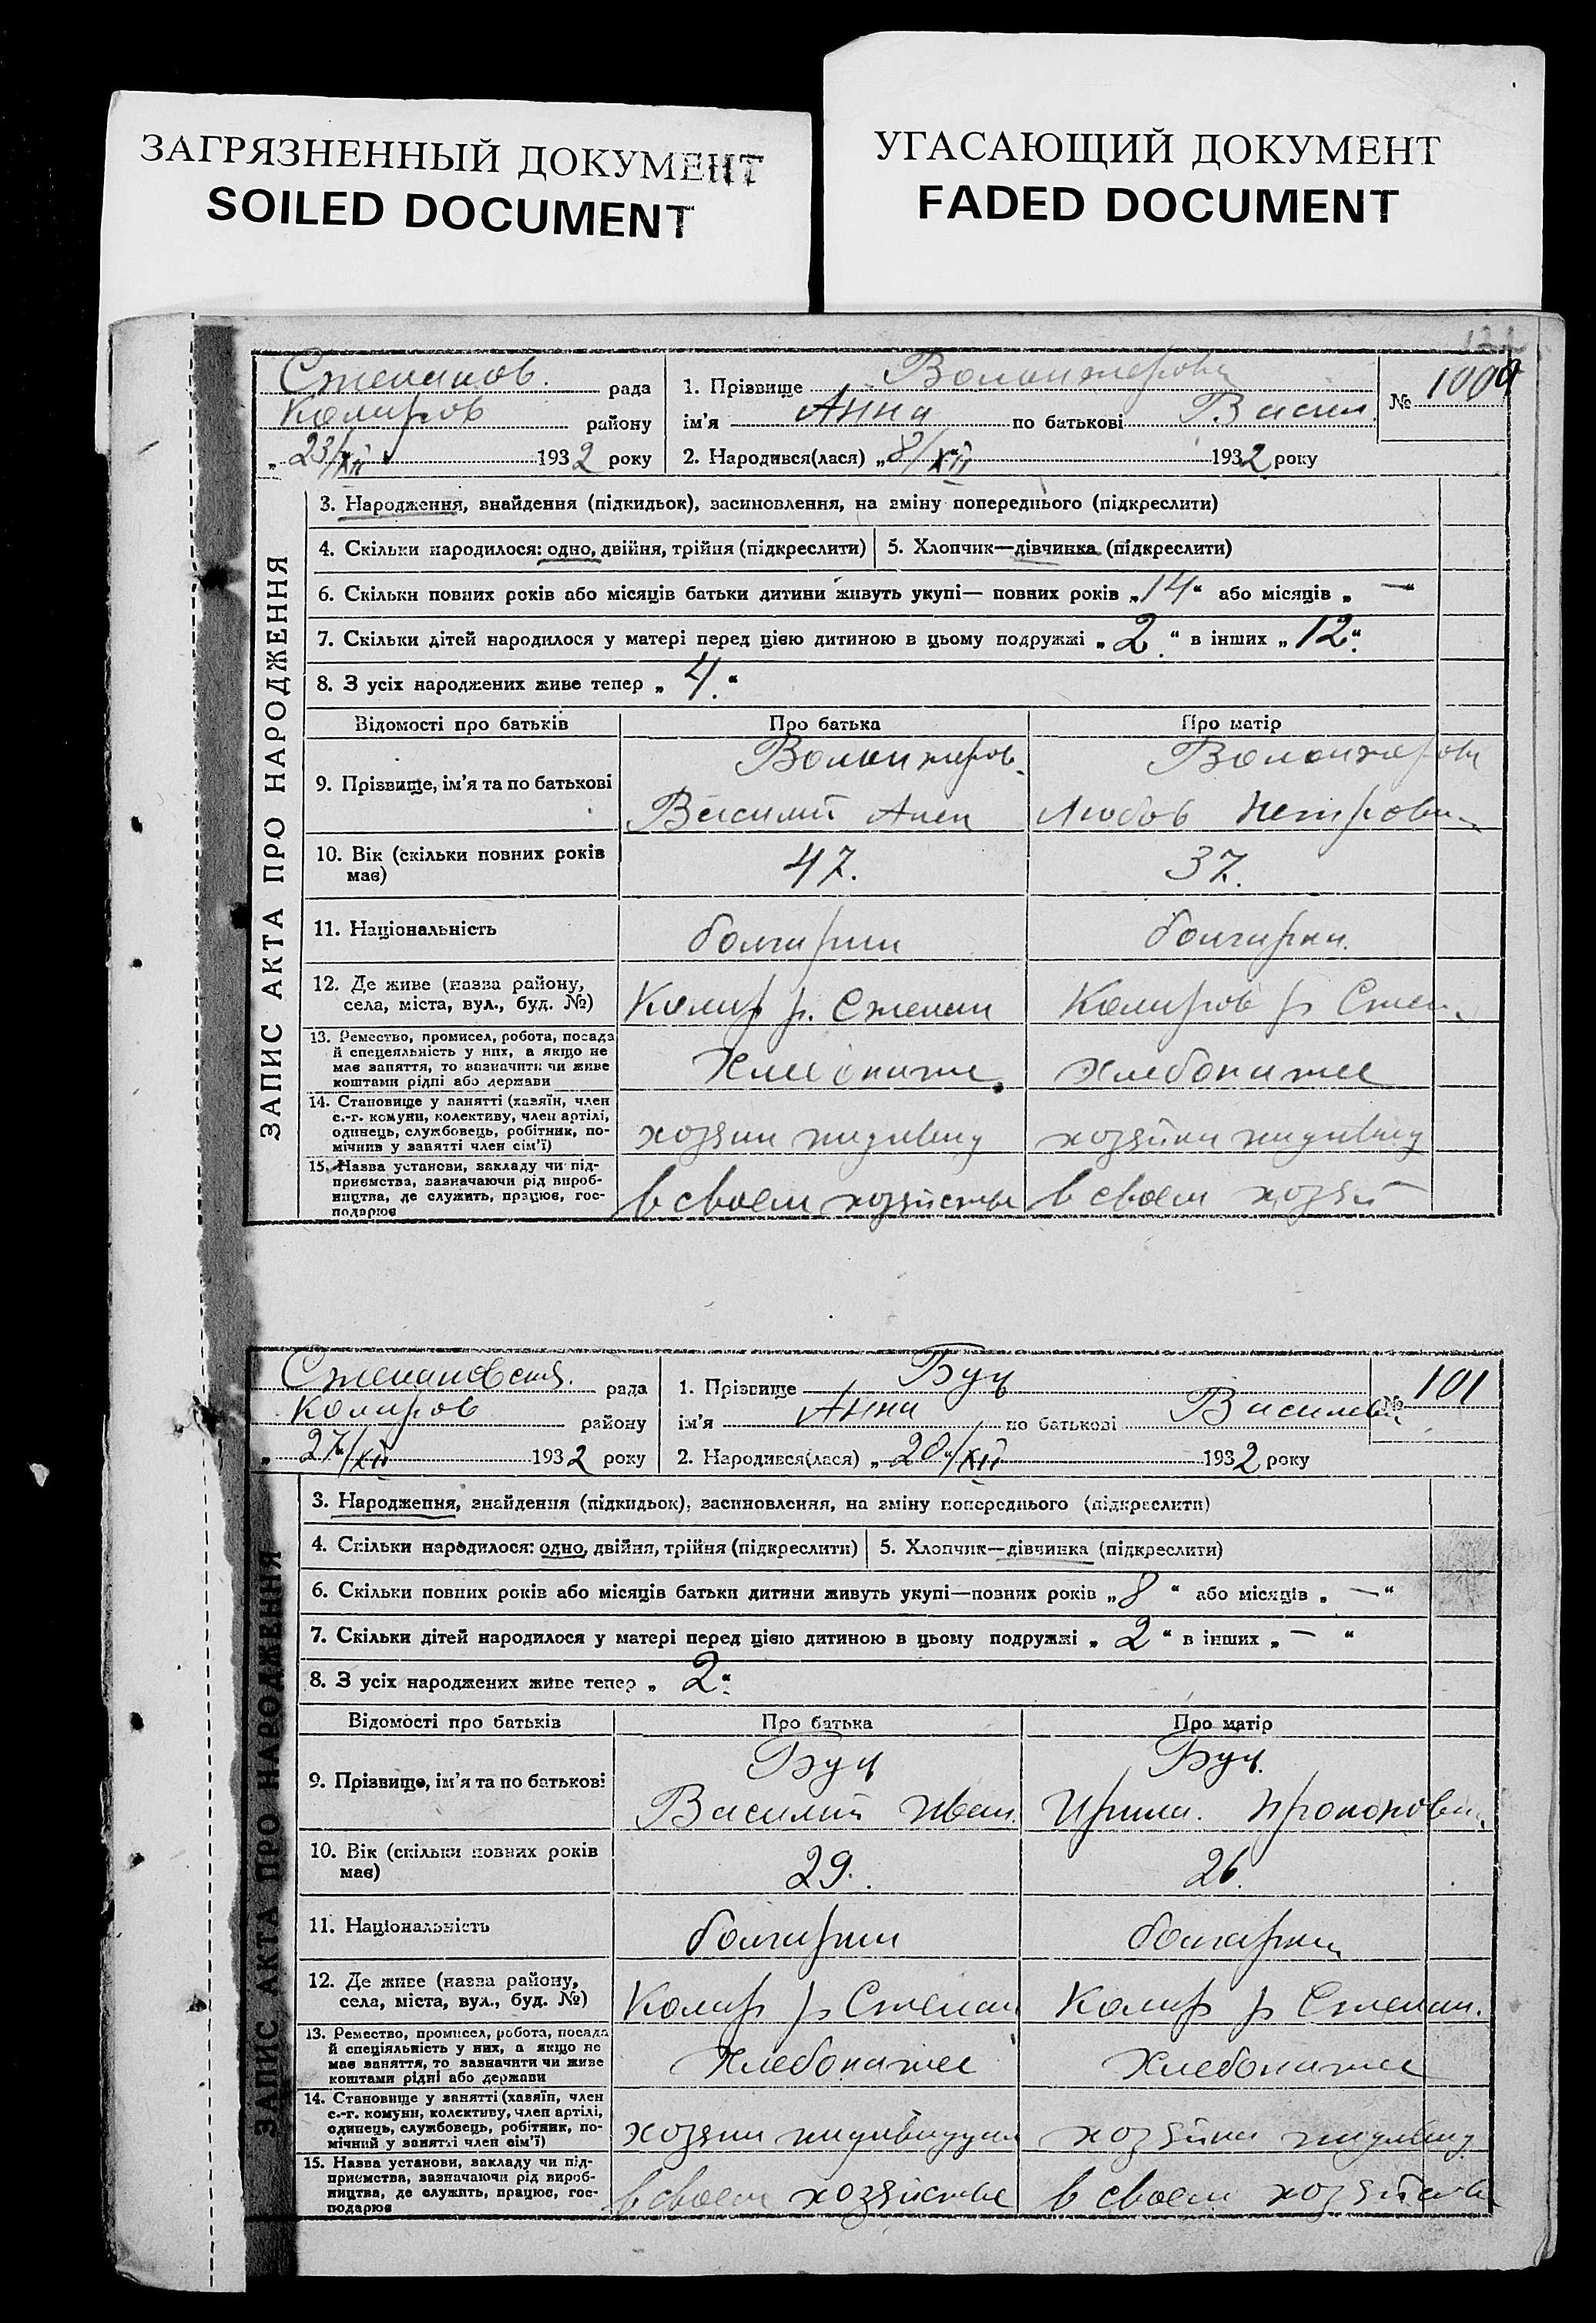 ЗАГРЯЗНЕННЫЙ ДОКУМЕНТ
SOILED DOCUMENT
УГАСАЮЩИЙ ДОКУМЕНТ
FADED DOCUMENT
122
Степанов. рада
Коларов району
„ 23/XII 1932 року
1. Прізвище
ім'я Анна по батькові Васил.
2. Народився(лася) „8/XII 1932 року
№ 100
ЗАПИС АКТА ПРО НАРОДЖЕННЯ
3. Народження, знайдення (підкидьок), засиновлення, на зміну попереднього (підкреслити)
4. Скільки народилося: одно, двійня, трійня (підкреслити)
5. Хлопчик—дівчинка (підкреслити)
6. Скільки повних років або місяців батьки дитини живуть укупі— повних років „14“ або місяців „ — “
7. Скільки дітей народилося у матері перед цією дитиною в цьому подружжі „ 2 “ в інших „ 12 “
8. З усіх народжених живе тепер „ 4. “
Відомості про батьків Про батька Про матір
9. Прізвище, ім'я та по батькові
Василий Алек Любов Петровн
10. Вік (скільки повних років
має)
47. 37.
11. Національність
болгарин болгарка.
12. Де живе (назва району,
села, міста, вул., буд. №)
Колар р. Степан Коларов р Степ.
13. Ремество, промисел, робота, посада
й спецеяльність у них, а якщо не
має заняття, то зазначити чи живе
коштами рідні або держави
Хлебопаше Хлебопаше
14. Становище у занятті (хазяїн, член
с.-г. комуни, колективу, член артілі,
одинець, службовець, робітник, по-
мічник у занятті член сім'ї)
хозяин индивид хозяйка индивид
15. Назва установи, закладу чи під-
приємства, зазначаючи рід вироб-
ництва, де служить, працює, гос-
подарює
в своем хозяйстве в своем хозяй
Степановська. рада
Коларов району
„ 27/XII 1932 року
1. Прізвище Буц
ім'я Анна по батькові Василевн
2. Народився(лася) „ 20/XII 1932 року
№ 101
ЗАПИС АКТА ПРО НАРОДЖЕННЯ
3. Народження, знайдення (підкидьок), засиновлення, на зміну попереднього (підкреслити)
4. Скільки народилося: одно, двійня, трійня (підкреслити)
5. Хлопчик—дівчинка (підкреслити)
6. Скільки повних років або місяців батьки дитини живуть укупі—повних років „8 “ або місяців „ — “
7. Скільки дітей народилося у матері перед цією дитиною в цьому подружжі „ 2 “ в інших „ — “
8. З усіх народжених живе тепер „ 2 “
Відомості про батьків Про батька Про матір
9. Прізвище, ім'я та по батькові
Буц Буц.
Василий Иван. Ирина. Прокоповн.
10. Вік (скільки повних років
має)
29. 26.
11. Національність
болгарин болгарка
12. Де живе (назва району,
села, міста, вул., буд. №)
Колар р Степан Колар р Степан.
13. Ремество, промисел, робота, посада
й спеціяльність у них, а якщо не
має заняття, то зазначити чи живе
коштами рідні або держави
Хлебопаше Хлебопаше
14. Становище у занятті (хазяїн, член
с.-г. комуни, колективу, член артілі,
одинець, службовець, робітник, по-
мічний у занятті член сім'ї)
хозяин индивидуал хозяйка индивид
15. Назва установи, закладу чи під-
приємства, зазначаючи рід вироб-
ництва, де служить, працює, гос-
подарює
в своем хозяйстве в своем хозяйстве